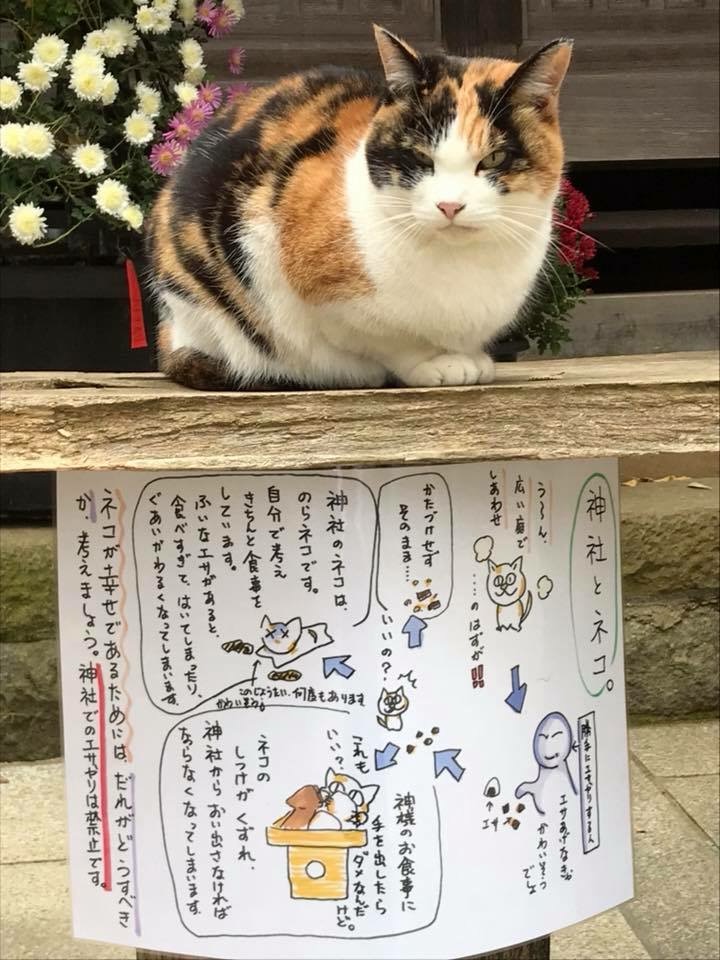 神社とネコ。
うーん、
広い庭で
しあわせ
‥‥のはずが!!
勝手にエサやりする人
エサあげなきゃ
かわいそう
でしょ
エサ
かたづけせず
そのまま‥‥
いいの?
神社のネコは、
のらネコです。
自分で考え
きちんと食事を
しています。
ふいなエサがあると、
食べすぎて、はいてしまったり、
ぐあいがわるくなってしまいます。
このじょうたい、何度もあります
かわいそう
これも
いい?
神様のお食事に
手を出したら
ダメなんだ
けど。
ネコの
しつけがくずれ、
神社からおい出さなければ
ならなくなってしまいます。
ネコが幸せであるためには、だれがどうすべき
か、考えましょう。神社でのエサやりは禁止です。